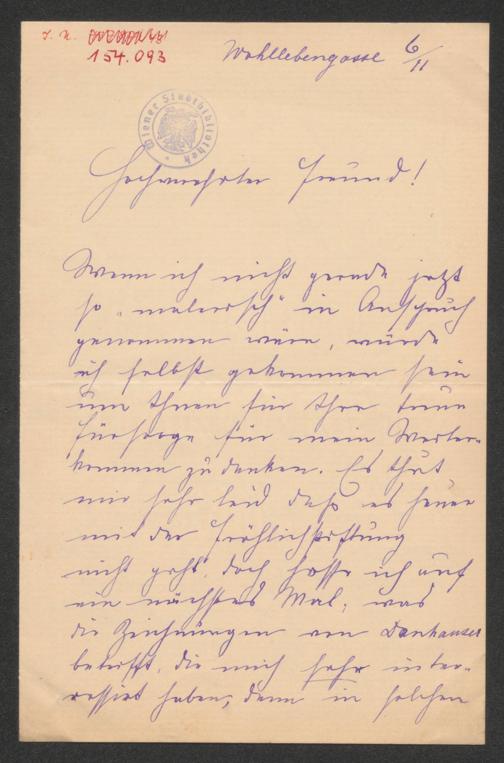 J. N.
154.093
Wohllebengasse 6/11
Wiener Stadtbibliothek
Hochverehrter Freund!
Wenn ich nicht gerade jetzt
so „malerisch“ in Anspruch
genommen wäre, würde
ich selbst gekommen sein
um Ihnen für Ihre treue
Fürsorge für mein Weiter-
kommen zu danken. Es thut
mir sehr leid daß es heuer
mit der Fröhlichstiftung
nicht geht, doch hoffe ich auf
ein nächstes Mal; was
die Zeichnungen von Danhauser
betrifft, die mich sehr inter-
ressirt haben, denn in solchen